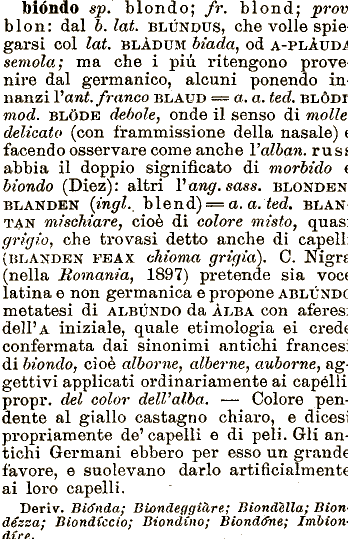 bióndo sp. blondo; fr. blond; prov
blon: dal b. lat. BLÚNDUS, che volle spie-
garsi col lat. BLÀDUM biada, od A-PLÀUDA
semola; ma che i più ritengono prove-
nire dal germanico, alcuni ponendo in-
nanzi l'ant. franco BLAUD = a. a. ted. BLÔDI
mod. BLÖDE debole, onde il senso di molle
delicato (con frammissione della nasale) e
facendo osservare come anche l'alban. russ
abbia il doppio significato di morbido e
biondo (Diez): altri l'ang. sass. BLONDEN
BLANDEN (ingl. blend) = a. a. ted. BLAN-
TAN mischiare, cioè di colore misto, quasi
grigio, che trovasi detto anche di capelli
(BLANDEN FEAX chioma grigia). C. Nigra
(nella Romania, 1897) pretende sia voce
latina e non germanica e propone ABLÚNDO
metatesi di ALBÚNDO da ÀLBA con aferesi
dell'A iniziale, quale etimologia ei crede
confermata dai sinonimi antichi francesi
di biondo, cioè alborne, alberne, auborne, ag-
gettivi applicati ordinariamente ai capélli
propr. del color dell'alba. — Colore pen-
dente al giallo castagno chiaro, e dicesi
propriamente de' capelli e di peli. Gli an-
tichi Germani ebbero per esso un grande
favore, e suolevano darlo artificialmente
ai loro capelli.
Deriv. Biónda; Biondeggiàre; Biondèlla; Bion-
dézza; Biondíccio; Biondíno; Biondóne; Imbion-
díre.